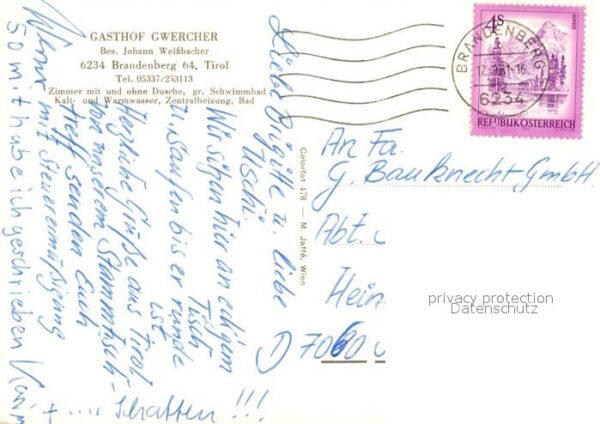 GASTHOF GWERCHER
Bes. Johann Weißbacher
6234 Brandenberg 64, Tirol
Tel. 05337/253113
Zimmer mit und ohne Dusche, gr. Schwimmbad
Kalt- und Warmwasser, Zentralheizung, Bad
Liebe Birgitte u. liebe
Uschi
Wir sitzen hier an eckigem
Tisch
u. saufen bis er runde
ist
Herzliche Grüße aus Tirol
von unserem Stammtisch-
treff senden Euch
Werner mit Steuerermäßigung
Somit habe ich geschrieben Karin
+ .... Schatten !!!
Colorfot 478 — M. Jaffé, Wien
4S
REPUBLIK ÖSTERREICH
BRANDENBERG
6234
An Fa.
G. Bauknecht GmbH
Abt.
Hein
D 7060
privacy protection
Datenschutz